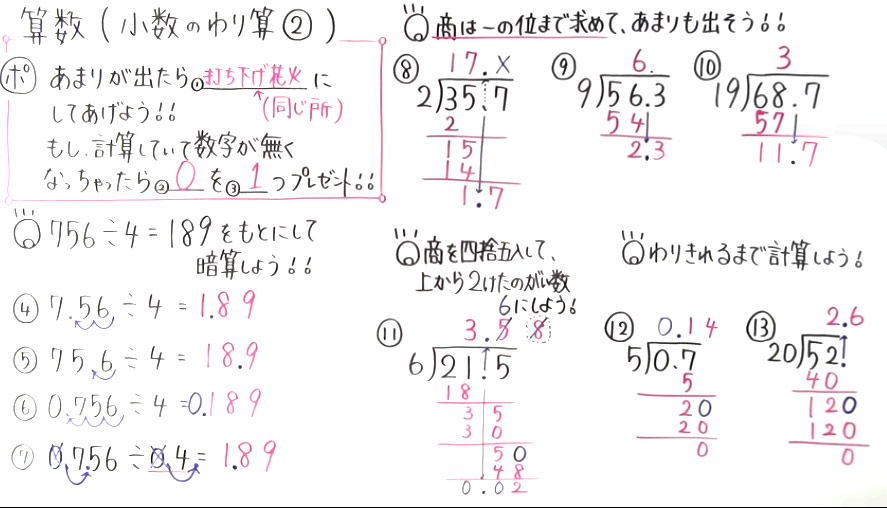 算数(小数のわり算②)
ポ あまりが出たら①打ち下げ花火に
してあげよう!! (同じ所)
もし、計算していて数字が無く
なっちゃったら②0を③1つプレゼント!!
756÷4=189をもとにして
暗算しよう!!
④ 7.56÷4=1.89
⑤ 75.6÷4=18.9
⑥ 0.756÷4=0.189
⑦ 0.756÷0.4=1.89
商は一の位まで求めて、あまりも出そう!!
⑧ 17.x
2)35.7
2
15
14
1.7
⑨ 6.
9)56.3
54
2.3
⑩ 3
19)68.7
57
11.7
商を四捨五入して、
上から2けたのがい数
にしよう!
6
⑪ 3.5 8
6)21.5
18
3 5
3 0
50
48
0.02
わりきれるまで計算しよう!
⑫ 0.14
5)0.7
5
20
20
0
⑬ 2.6
20)52.
40
120
120
0